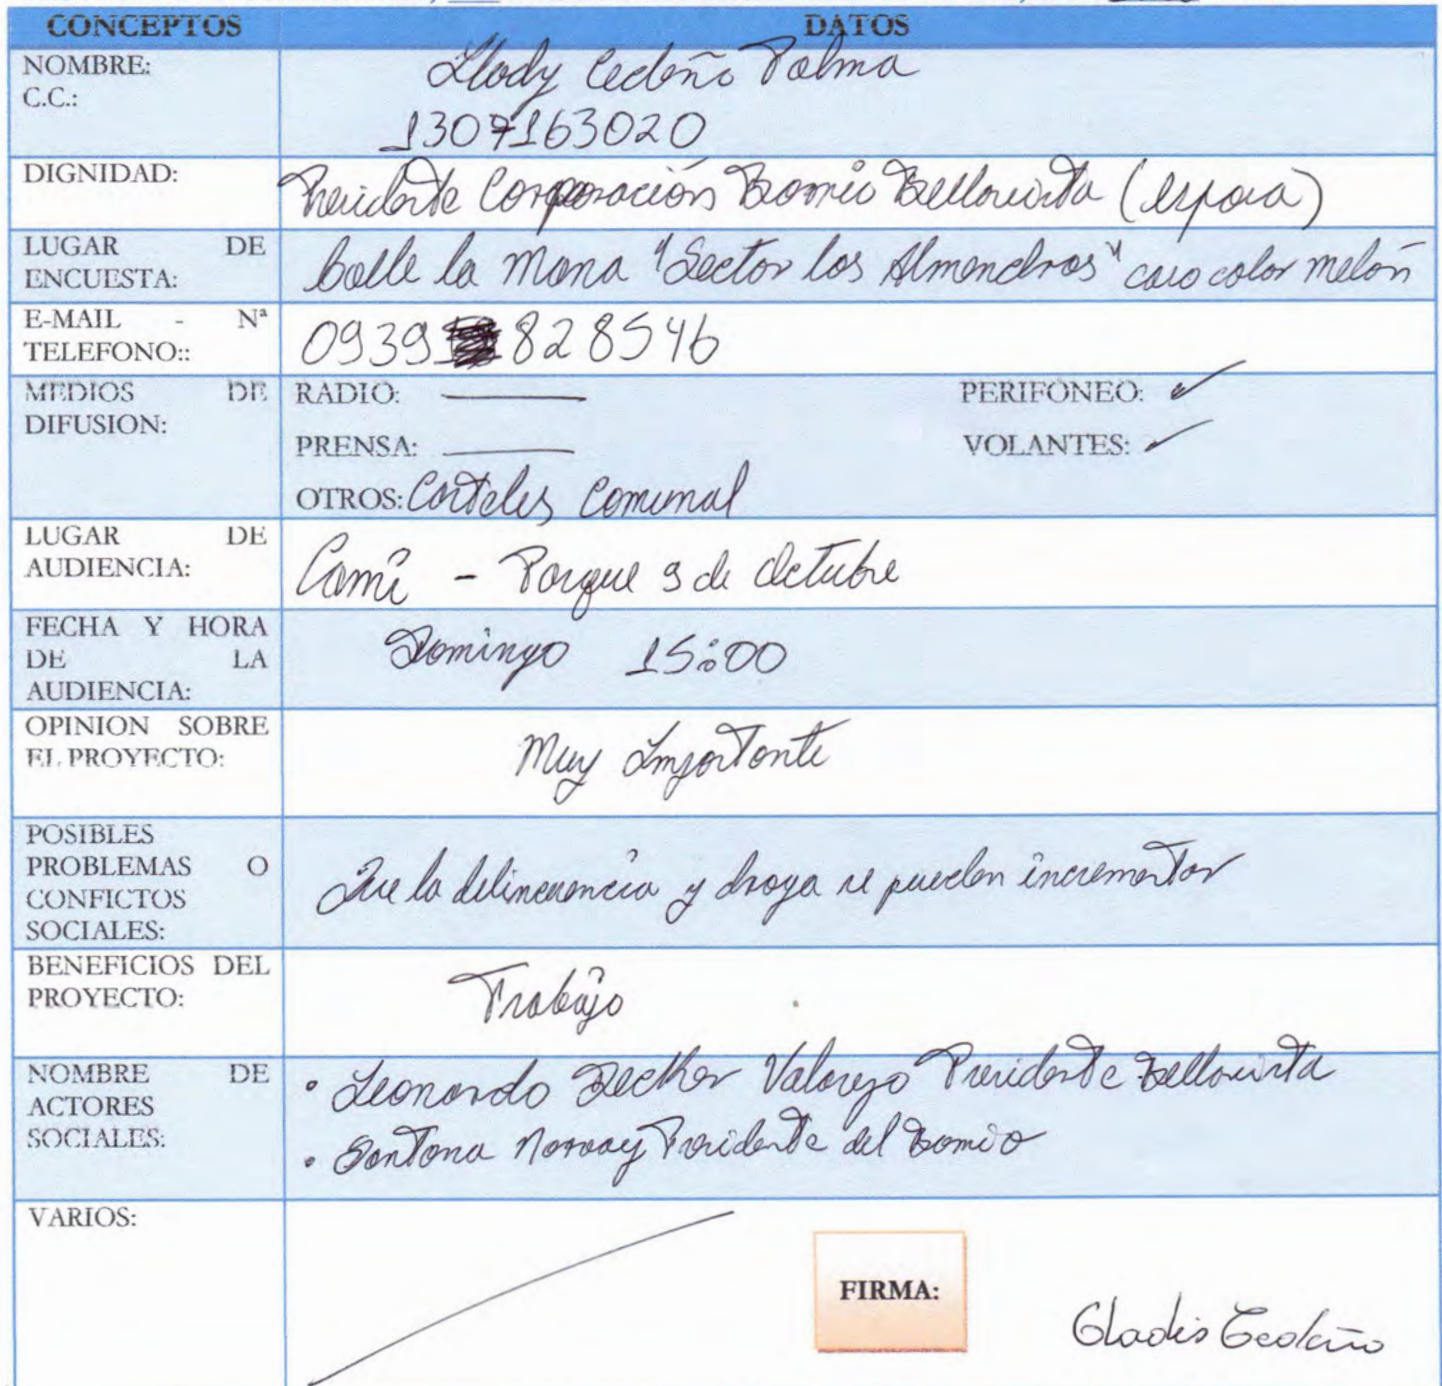 CONCEPTOS DATOS
NOMBRE: Cedeño Palma
C.C.: 1307163020
DIGNIDAD: Presidente Corporación Barrio Bellavista (esposa)
LUGAR DE
ENCUESTA: Calle la Mana "Sector los Almendros" casa color melón
E-MAIL - Nª
TELEFONO:: 0939 828546
MEDIOS DE
DIFUSION:
RADIO: —— PERIFONEO: ✓
PRENSA: —— VOLANTES: ✓
OTROS: Carteles Comunal
LUGAR DE
AUDIENCIA: Cami - Parque 9 de Octubre
FECHA Y HORA
DE LA
AUDIENCIA: Domingo 15:00
OPINION SOBRE
EL PROYECTO: Muy Importante
POSIBLES
PROBLEMAS O
CONFICTOS
SOCIALES: Que la delincuencia y droga se pueden incrementar
BENEFICIOS DEL
PROYECTO: Trabajo
NOMBRE DE
ACTORES
SOCIALES:
• Leonardo Valarezo Presidente Bellavista
• Santana Presidente del Barrio
VARIOS:
FIRMA: Gladis Cedeño